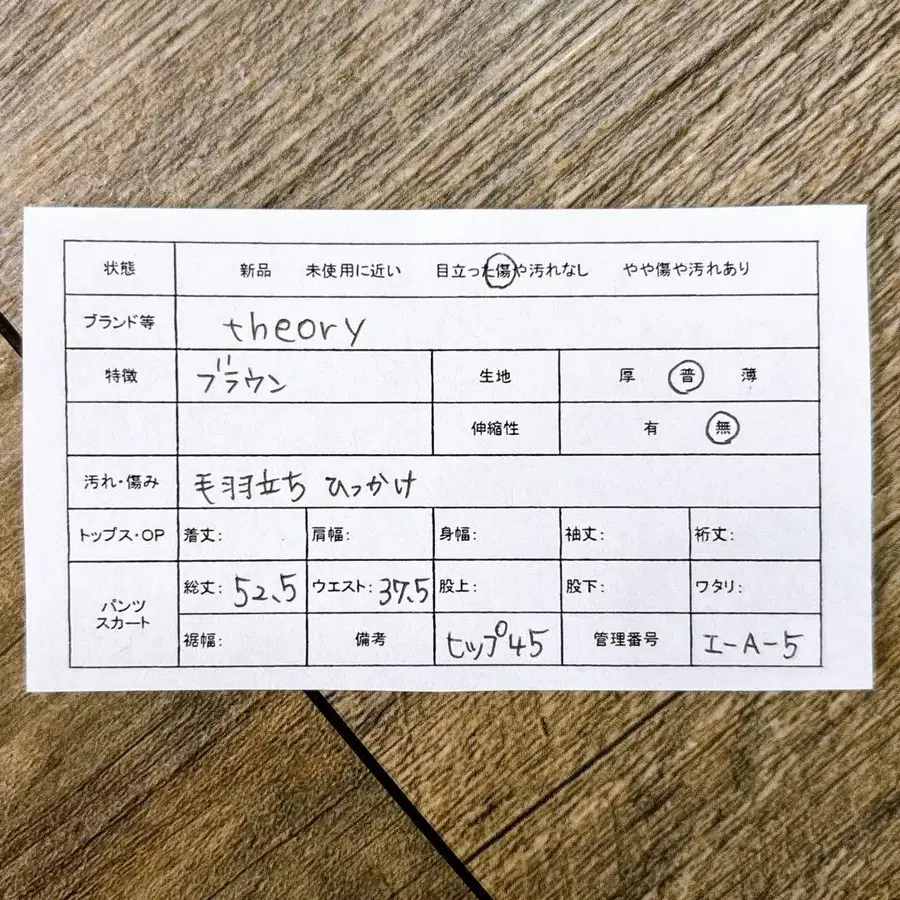 状態 新品 未使用に近い 目立った傷や汚れなし やや傷や汚れあり
ブランド等 theory
特徴 ブラウン 生地 厚 普 薄
伸縮性 有 無
汚れ・傷み 毛羽立ち ひっかけ
トップス・OP 着丈: 肩幅: 身幅: 袖丈: 裄丈:
パンツ スカート 総丈: 52.5 ウエスト: 37.5 股上: 股下: ワタリ:
裾幅: 備考 ヒップ45 管理番号 I-A-5